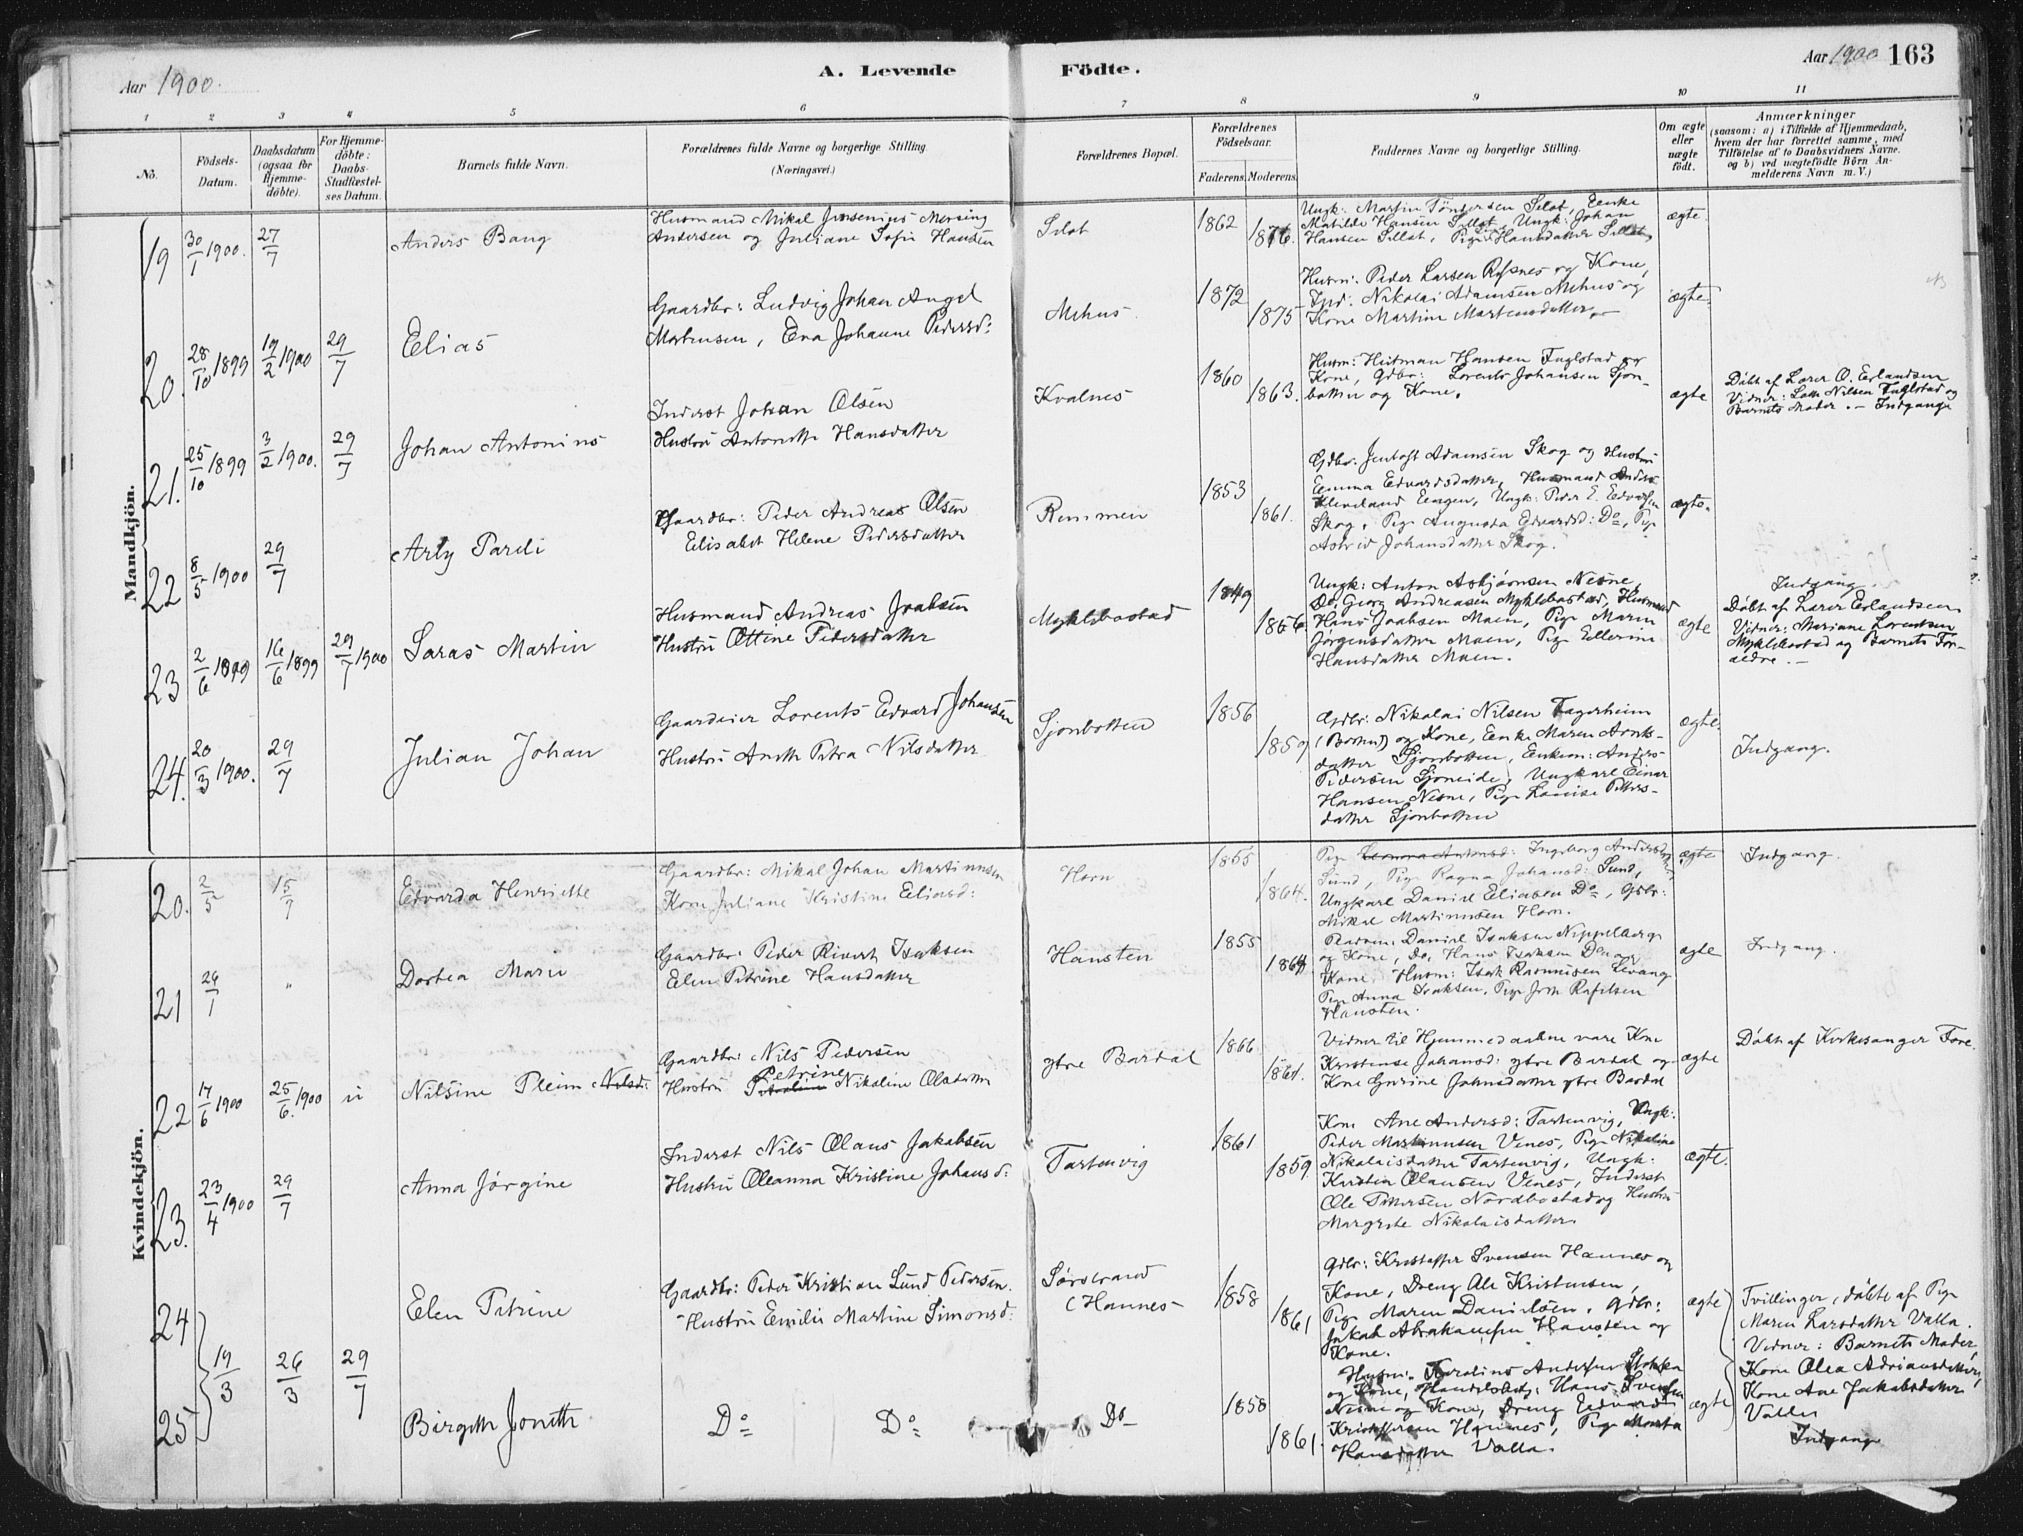 Aar 1900.
A. Levende Födte.
Aar 1900 163
1 2 3 4 5 6 7 8 9 10 11
No.
Födsels-Datum.
Daabsdatum (ogsaa for Hjemme-döbte).
For Hjemme-döbte: Daabs-Stadfæstel-ses Datum.
Barnets fulde Navn.
Forældrenes fulde Navne og borgerlige Stilling. (Næringsvei.)
Forældrenes Bopæl.
Forældrenes Födselsaar.
Faderens. Moderens.
Faddernes Navne og borgerlige Stilling.
Om ægte eller uægte födt.
Anmærkninger
(saasom: a) i Tilfælde af Hjemmedaab,
hvem der har forrettet samme, med
Tilföielse af to Daabsvidners Navne.
og b) ved uægtefödte Börn An-
melderens Navn m. V.)
Mandkjön.
19 30/1 1900. 27/7 Anders Bang
Husmand Mikal Jensenius Mersing
Andersen og Juliane Sofie Hansen
Selst 1862 1876.
Ungk: Martin Töndersen Selst, Enke
Matilde Hansen Sellst, Ungk: Johan
Hansen Sellst, Pige Hansdatter Sellst
ægte
20. 28/10 1899 19/2 1900 29/7 Elias
Gaardbr: Ludvig Johan Angel
Mortensen, Eva Johanne Pedersd:
Mehus 1872 1875
Husm: Peder Larsen Resnes og Kone,
Ind. Nikolai Adamsen Mehus og
Kone Martine Martensdatter
ægte
21. 25/10 1899 3/2 1900. 29/7 Johan Antonius
Inderst Johan Olsen
Hustru Antonette Hansdatter
Kvalnes 1860 1863.
Husm: Hitman Hansen Fuglstad og
Kone, Gdbr: Lorents Johansen Sjon-
botten og Kone.
ægte
Döbt af Lærer O. Erlandsen
Vidner: Nilsen Fuglstad og
Barnets Moder. - Indgang
22 8/5 1900 29/7 Arly Pareli
Gaardbr: Peder Andreas Olsen
Elisabet Helene Pedersdatter
Remmen 1853 1861.
Gdbr. Jentoft Adamsen Skog og Hustru
Emma Edvardsdatter, Husmand Anders
Kleveland Eengen, Ungk: Peder E. Edvardsen
Skog, Pige Augusta Edvardsd: Do, Pige
Astrid Johansdatter Skog.
ægte.
23 2/6 1899 16/6 1899 29/7 1900 Saras Martin
Husmand Andreas Joabsen
Hustru Ottine Pedersdatter
Myklebostad 1849 1856
Ungk: Anton Asbjörnsen Nesne,
Do. Georg Andreasen Myklebostad, Husmand
Hans Joabsen Maen, Pige Maren
Jörgensdatter Maen, Pige Ellerine
Hansdatter Maen.
ægte
Indgang
Döbt af Lærer Erlandsen
Vidner: Mariane Lorentsen
Myklebostad og Barnets For-
ældre. -
24. 20/3 1900. 29/7 Julian Johan
Gaardeier Lorents Edvard Johansen
Hustru Aneth Petra Nilsdatter
Sjonbotten 1856 1859
Gdbr: Nikolai Nilsen Fagerheim
(Botten) og Kone, Enke Maren Arnts-
datter Sjonbotten, Enkem: Anders
Pedersen Sjoneide, Ungkarl Einar
Hansen Nesne, Pige Lovise Petters-
datter Sjonbotten
ægte.
Indgang.
Kvindekjön.
20. 2/5 15/7 Edvarda Henriette
Gaardbr: Mikal Johan Martinusen
Kone Juliane Kristine Eliasd:
Horn 1855 1864.
Pige Ingeborg Andersdtr
Sund, Pige Ragna Johansd: Sund,
Ungkarl Daniel Eliassen Do, Gdbr:
Mikal Martinusen Horn.
ægte
Indgang.
21 24/7 " Dortea Marie
Gaardbr: Peder Rivert Isaksen
Elen Petrine Hansdatter
Hansten 1855 1864
Pladsm: Daniel Isaksen Nippelberg
og Kone, Do. Hans Isaksen Do og
Kone, Husm: Isak Rasmusen Levang
Pige Anna Isaksen, Pige Rafelsen
Hansten.
ægte
Indgang.
22 17/6 1900 25/6. 1900 Nilsine Pleim Nilsd:
Gaardbr: Nils Pedersen
Hustru Petrine Nikoline Olsdatter
ytre Bardal 1866 1861.
Vidner til Hjemmedaaben vare Kone
Kristense Johansd: ytre Bardal og
Kone Gurine Johnsdatter ytre Bardal
ægte
Döbt af Kirkesanger Fore.
23. 23/4 1900 29/7 Anna Jörgine
Inderst Nils Olaus Jakobsen
Hustru Oleanna Kristine Johansd:
Tartenvig 1861 1859.
Kone Ane Andersd: Tartenvig, Ungk:
Peder Martinusen Venes, Pige Nikoline
Nikolaisdatter Tartenvig, Ungk:
Kristen Olausen Venes, Inderst
Ole Pettersen Nordbostad og Hustru
Margrete Nikolaisdatter.
ægte.
24 19/3 26/3 29/7 Elen Petrine
Gaardbr: Peder Kristian Lund Pedersen.
Hustru Emilie Martine Simonsd:
Sörstrand
(Hannes 1858 1861
Gdbr: Kristoffer Svensen Hannes og
Kone, Dreng Ole Kristensen,
Pige Maren Danielsen, Gdbr:
Jakob Abrahamsen Hansten og
Kone.
ægte
Tvillinger, döbte af Pige
Maren Larsdatter Valla.
Vidner: Barnets Moder,
Kone Olea Adriansdatter,
Kone Ane Jakobsdatter
Valla
Indgang
25 Birgitte Jonette
Do Do Do 1858 1861.
Husm. Karolius Andersen Stokka
og Kone, Handelsbetj: Hans Svensen
Nesne og Kone, Dreng Edvard
Kristoffersen Hannes, Pige Marta
Hansdatter Valla.
ægte